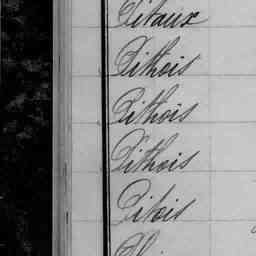 Pitaux
Pithois
Pithois
Pithois
Pitois